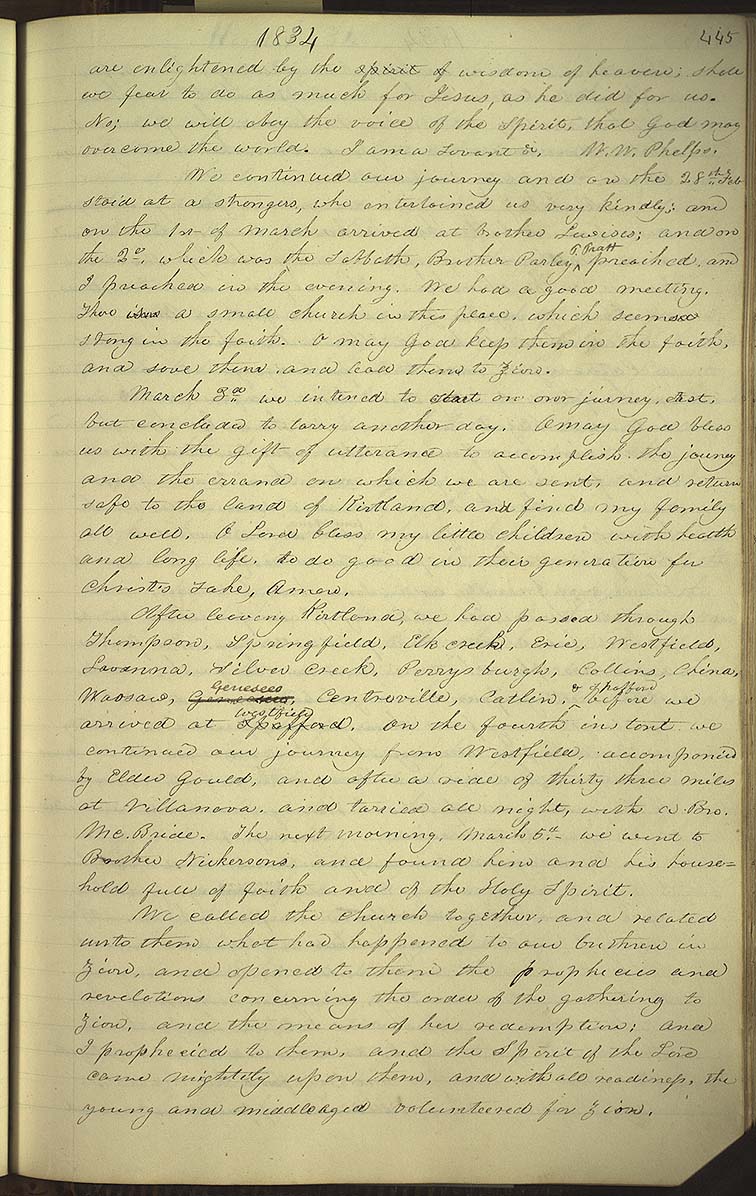 1834 445
are enlightened by the spirit of wisdom of heaven; shall
we fear to do as much for Jesus, as he did for us.
No; we will obey the voice of the Spirit, that God may
overcome the world. I am a servant &c. W. W. Phelps.
We continued our journey and on the 28th Feb
staid at a strangers, who entertained us very kindly; and
on the 1st of March arrived at brother Lewises; and on
the 2nd, which was the Sabbath, Brother Parley P. Pratt preached, and
I preached in the evening. We had a good meeting.
There is a small church in this place, which seem
strong in the faith. O may God keep them in the faith,
and save them, and lead them to Zion.
March 3rd we intend to start on our jurney, east,
but concluded to tarry another day. O may God bless
us with the gift of utterance to accomplish the jouney
and the errand on which we are sent, and return
safe to the land of Kirtland, and find my family
all well. O Lord bless my little children with health
and long life, to do good in their generation for
Christ's sake, Amen.
After leaving Kirtland, we had passed through
Thompson, Springfield, Elk creek, Erie, Westfield,
Lavanna, Silver creek, Perrysburgh, Collins, China,
Warsaw, Genesee, Centreville, Catlin, & Spafford before we
arrived at Westfield. On the fourth inst we
continued our journey from Westfield, accompanied
by Elder Gould, and after a ride of thirty three miles
at Villanova, and tarried all night, with a Bro.
Mc.Bride. The next morning, March 5th we went to
Brother Nickersons, and found him and his house=
hold full of faith and of the Holy Spirit.
We called the church together, and related
unto them what had happened to our brethren in
Zion, and opened to them the prophecies and
revelations concerning the order of the gathering to
Zion, and the means of her redemption; and
I prophecied to them, and the Spirit of the Lord
came mightily upon them, and with all readiness, the
young and middleaged volunteered for Zion.